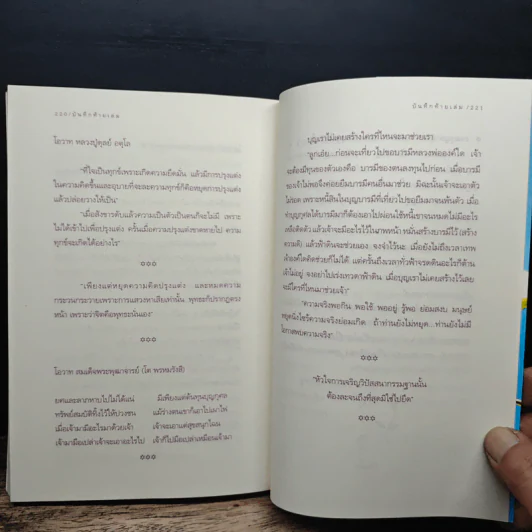 220/บันทึกท้ายเล่ม
โอวาท หลวงปู่ดุลย์ อตุโล
"ที่ใจเป็นทุกข์เพราะเกิดความยึดมั่น แล้วมีการปรุงแต่ง
ในความคิดขึ้นและอุบายที่จะละความทุกข์ก็คือหยุดการปรุงแต่ง
แล้วปล่อยวางให้เป็น"
"เมื่อสังขารดับแล้วความเป็นตัวเป็นตนก็จะไม่มี เพราะ
ไม่ได้เข้าไปเพื่อปรุงแต่ง ครั้นเมื่อความปรุงแต่งขาดหายไป ความ
ทุกข์จะเกิดได้อย่างไร"
"เพียงแต่หยุดความคิดปรุงแต่ง และหมดความ
กระวนกระวายเพราะการแสวงหาเสียเท่านั้น พุทธะก็ปรากฏตรง
หน้า เพราะว่าจิตคือพุทธะนั่นเอง"
โอวาท สมเด็จพระพุฒาจารย์ (โต พรหมรังสี)
ยศและลาภหาบไปไม่ได้แน่ มีเพียงแต่ต้นทุนบุญกุศล
ทรัพย์สมบัติทิ้งไว้ให้ปวงชน แม้ร่างตนเขาก็เอาไปเผาไฟ
เมื่อเจ้ามามีอะไรมาด้วยเจ้า เจ้าจะเอาแต่สุขสนุกไฉน
เจ้ามามือเปล่าเจ้าจะเอาอะไรไป เจ้าก็ไปมือเปล่าเหมือนเจ้ามา
บันทึกท้ายเล่ม /221
บุญเราไม่เคยสร้างใครที่ไหนจะมาช่วยเรา
"ลูกเอ๋ย...ก่อนจะเที่ยวไปขอบารมีหลวงพ่อองค์ใด เจ้า
จะต้องมีทุนของตัวเองคือ บารมีของตนลงทุนไปก่อน เมื่อบารมี
ของเจ้าไม่พอจึงค่อยยืมบารมีคนอื่นมาช่วย มิฉะนั้นเจ้าจะเอาตัว
ไม่รอด เพราะหนี้สินในบุญบารมีที่เที่ยวไปขอยืมมาจนพ้นตัว เมื่อ
ทำบุญกุศลได้บารมีมาก็ต้องเอาไปผ่อนใช้หนี้เขาจนหมดไม่มีอะไร
เหลือติดตัว แล้วเจ้าจะมีอะไรไว้ในภพหน้า หมั่นสร้างบารมีไว้ (สร้าง
ความดี) แล้วฟ้าดินจะช่วยเอง จงจำไว้นะ เมื่อยังไม่ถึงเวลาเทพ
เจ้าองค์ใดคิดช่วยก็ไม่ได้ แต่ครั้นถึงเวลาทั่วฟ้าจรดดินอะไรก็ต้าน
เจ้าไม่อยู่ จงอย่าไปเร่งเทวดาฟ้าดิน เมื่อบุญเราไม่เคยสร้างไว้เลย
จะมีใครที่ไหนมาช่วยเจ้า"
"ความจริงพอกิน พอใช้ พออยู่ รู้พอ ย่อมสงบ มนุษย์
หยุดนิ่งใช่ไร้ความจริงย่อมเกิด ถ้าท่านยังไม่หยุด...ท่านยังไม่มี
โอกาสพบความจริง"
"หัวใจการเจริญวิปัสสนากรรมฐานนั้น
ต้องละจนถึงที่สุดมิใช่ไปยึด"